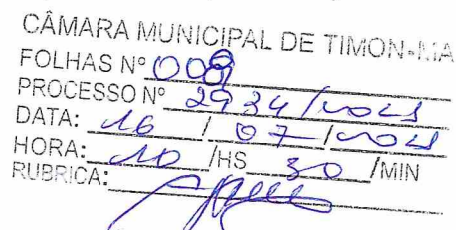 CÂMARA MUNICIPAL DE TIMON-MA
FOLHAS Nº 008
PROCESSO Nº 2934/2021
DATA: 16 / 07 / 2021
HORA: 10 /HS 30 /MIN
RUBRICA: